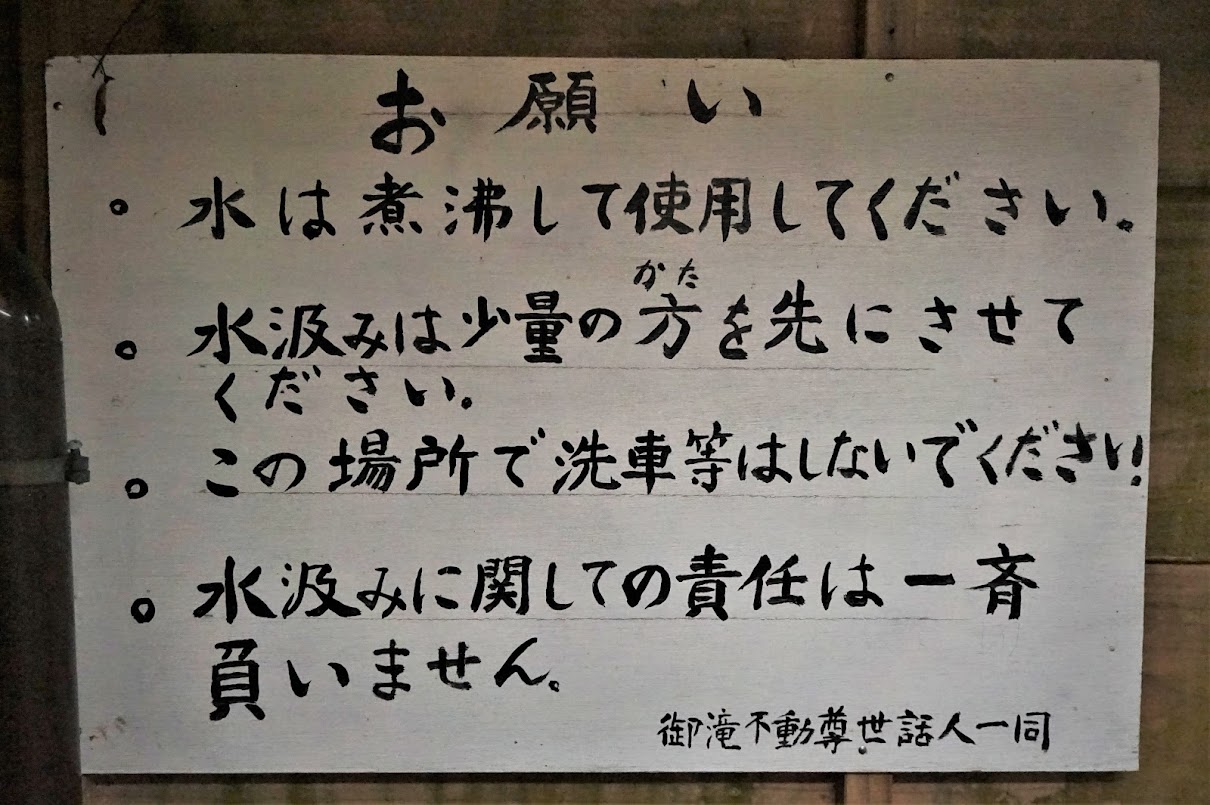 お願い
。水は煮沸して使用してください。
かた
。水汲みは少量の方を先にさせて
ください。
。この場所で洗車等はしないでください!
。水汲みに関しての責任は一斉
負いません。
御滝不動尊世話人一同